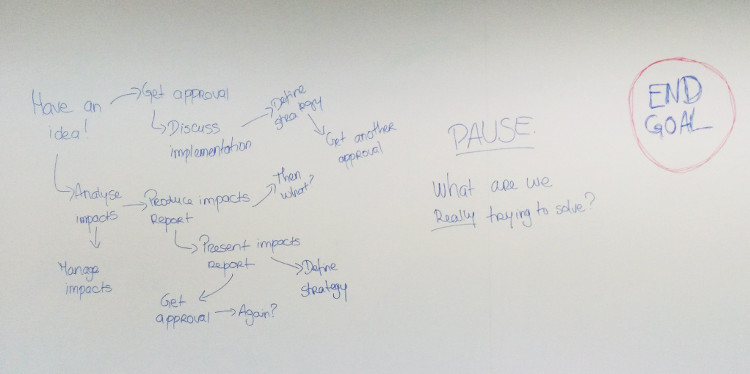 Have an
idea!
Get approval
Discuss
implementation
Define
strategy
Get another
approval
Analyse
impacts
Produce impacts
Report
Then
what?
Manage
impacts
Present impacts
Report
Define
strategy
Get
approval
Again?
PAUSE.
What are we
Really trying to solve?
END
GOAL